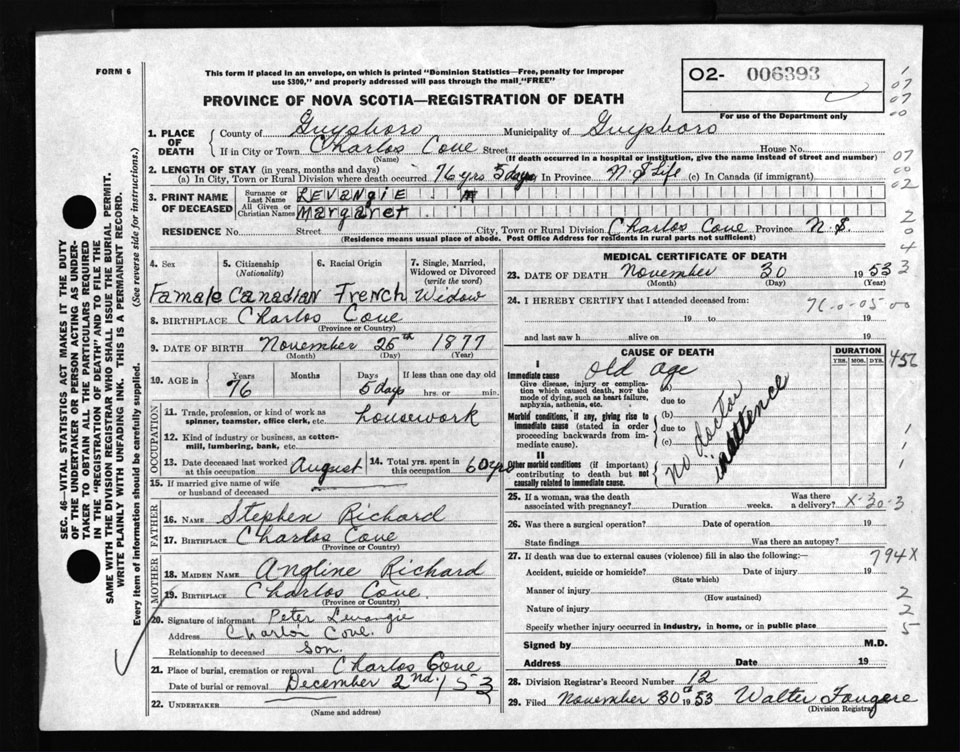 FORM 6
This form if placed in an envelope, on which is printed "Dominion Statistics—Free, penalty for improper
use $300," and properly addressed will pass through the mail "FREE"
O2- 006393
For use of the Department only
PROVINCE OF NOVA SCOTIA—REGISTRATION OF DEATH
1. PLACE OF DEATH County of Guysboro Municipality of Guysboro
If in City or Town Charlos Cove Street House No.
(Name) (If death occurred in a hospital or institution, give the name instead of street and number)
2. LENGTH OF STAY (in years, months and days)
(a) In City, Town or Rural Division where death occurred 76 yrs 5 days In Province N.S Life (c) In Canada (if immigrant)
3. PRINT NAME OF DECEASED Surname or Last Name LEVANGIE
All Given or Christian Names Margaret
RESIDENCE No. Street City, Town or Rural Division Charlos Cove Province N.S
(Residence means usual place of abode. Post Office Address for residents in rural parts not sufficient)
4. Sex 5. Citizenship (Nationality) 6. Racial Origin 7. Single, Married, Widowed or Divorced (write the word)
Famale Canadian French Widow
8. BIRTHPLACE Charlos Cove
(Province or Country)
9. DATE OF BIRTH November 25th 1877
(Month) (Day) (Year)
10. AGE in Years Months Days If less than one day old
76 5 days hrs. or min.
OCCUPATION
11. Trade, profession, or kind of work as spinner, teamster, office clerk, etc. housework
12. Kind of industry or business, as cotton-mill, lumbering, bank, etc.
13. Date deceased last worked at this occupation August 14. Total yrs. spent in this occupation 60 yrs
15. If married give name of wife or husband of deceased
FATHER
16. NAME Stephen Richard
17. BIRTHPLACE Charlos Cove
(Province or Country)
MOTHER
18. MAIDEN NAME Angline Richard
19. BIRTHPLACE Charlos Cove.
(Province or Country)
20. Signature of informant Peter Levangie
Address Charlos Cove.
Relationship to deceased son.
21. Place of burial, cremation or removal Charlos Cove
Date of burial or removal December 2nd 153
22. UNDERTAKER
(Name and address)
MEDICAL CERTIFICATE OF DEATH
23. DATE OF DEATH November 30 1953
(Month) (Day) (Year)
24. I HEREBY CERTIFY that I attended deceased from:
19 to 19
and last saw h alive on 19
CAUSE OF DEATH DURATION
YRS. MOS. DYS.
I
Immediate cause (a) Old Age
Give disease, injury or complication which caused death, NOT the mode of dying, such as heart failure, asphyxia, asthenia, etc.
due to
Morbid conditions, if any, giving rise to immediate cause (stated in order proceeding backwards from immediate cause).
(b)
due to
(c)
II
Other morbid conditions (if important) contributing to death but not causally related to immediate cause.
no doctor
inattence
25. If a woman, was the death associated with pregnancy? Duration weeks. Was there a delivery? X-30-3
26. Was there a surgical operation? Date of operation 19
State findings Was there an autopsy?
27. If death was due to external causes (violence) fill in also the following:—
794X
Accident, suicide or homicide? Date of injury 19
(State which)
Manner of injury
(How sustained)
Nature of injury
Specify whether injury occurred in industry, in home, or in public place
Signed by M.D.
Address Date 19
28. Division Registrar's Record Number 12
29. Filed November 30th 1953 Walter Fougere
(Division Registrar)
SEC. 46—VITAL STATISTICS ACT MAKES IT THE DUTY
OF THE UNDERTAKER OR PERSON ACTING AS UNDER-
TAKER TO OBTAIN ALL THE PARTICULARS REQUIRED
IN THE "REGISTRATION OF DEATH" AND TO FILE THE
SAME WITH THE DIVISION REGISTRAR WHO SHALL ISSUE THE BURIAL PERMIT.
WRITE PLAINLY WITH UNFADING INK. THIS IS A PERMANENT RECORD.
Every item of information should be carefully supplied. (See reverse side for instructions.)
1
07
07
00
07
00
02
2
0
4
3
456
1
1
1
2
2
5